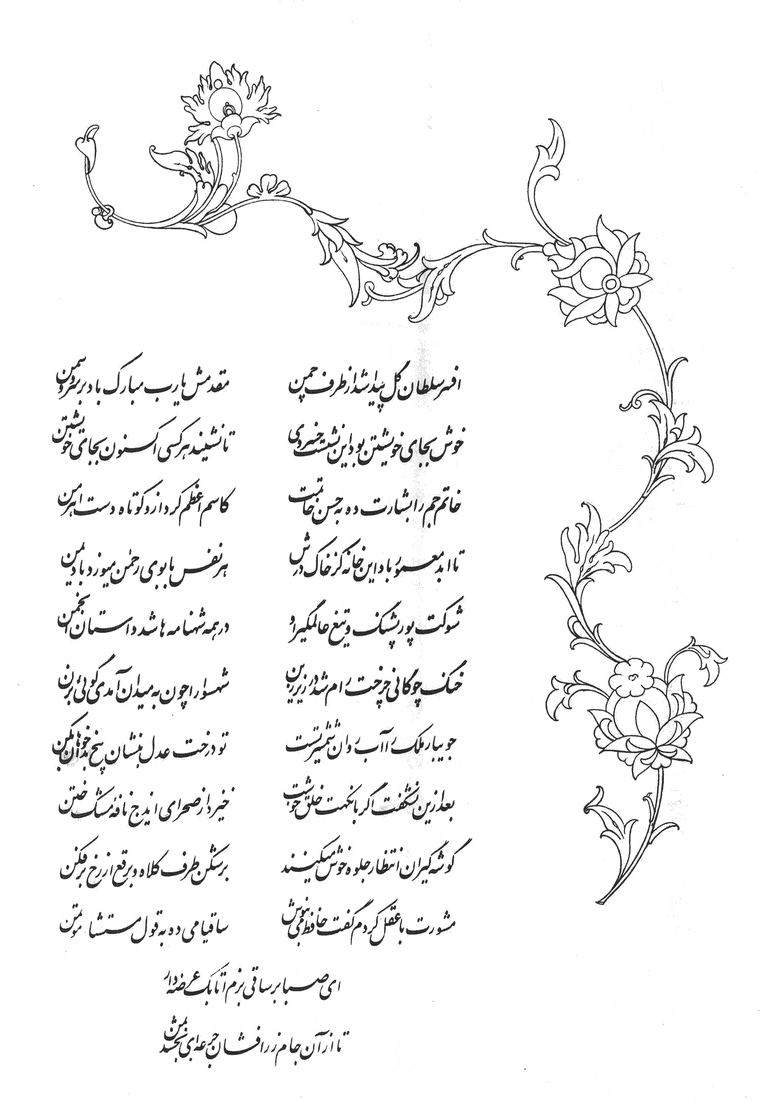 افسر سلطان گل پیدا شد از طرف چمن
مقدمش یارب مبارک باد بر سرو و سمن
خوش بجای خویشتن بود این نشست خسروی
تا نشیند هر کسی اکنون بجای خویشتن
خاتم جم را بشارت ده به حسن خاتمت
کاسم اعظم کرد ازو کوتاه دست اهرمن
تا ابد معمور باد این خانه کز خاک درش
هر نفس با بوی رحمن میوزد باد یمن
شوکت پور پشنگ و تیغ عالمگیر او
در همه شهنامه ها شد داستان انجمن
خنگ چوگانی چرخت رام شد در زیر زین
شهسوارا چون به میدان آمدی گوئی بزن
جویبار ملک را آب روان شمشیر تست
تو درخت عدل بنشان بیخ بدخواهان بکن
بعد ازین نشکفت اگر با نکهت خلق خوشت
خیزد از صحرای ایذج نافهٔ مشک ختن
گوشه گیران انتظار جلوه خوش میکنند
برشکن طرف کلاه و برقع از رخ برفکن
مشورت با عقل کردم گفت حافظ می بنوش
ساقیا می ده به قول مستشار مؤتمن
ای صبا بر ساقی بزم اتابک عرضه دار
تا از آن جام زرافشان جرعه ای بخشد بمن